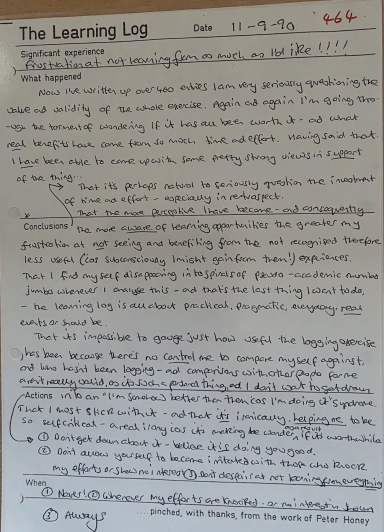 464
The Learning Log Date 11-9-90
Significant experience
Frustration at not learning from as much as I'd like !!!!
What happened
Now I've written up over 460 entries I am very seriously questioning the
value and validity of the whole exercise. Again and again I'm going thro-
-ugh the torment of wondering if it has all been worth it - and what
real benefits have come from so much time and effort. Having said that
I have been able to come up with some pretty strong views in support
of the thing...
That it's perhaps natural to seriously question the investment
of time and effort - especially in retrospect.
That the more perceptive I have become - and consequently
Conclusions the more aware of learning opportunities the greater my
frustration at not seeing and benefiting from the not recognised therefore
less useful (cos subconsciously I might gain from them!) experiences.
That I find myself disappearing into spirals of pseudo-academic mumbo
jumbo whenever I analyse this - and that's the last thing I want to do,
- the learning log is all about practical, pragmatic, everyday, real
events or should be.
That it's impossible to gauge just how useful the logging exercise
has been because there's no control me to compare myself against,
and who hasn't been logging - and comparisons with other people for me
aren't really valid, as it's such a personal thing, and I don't want to get drawn
Actions into an "I'm somehow better than them cos I'm doing it" syndrome
That I must STICK with it - and that it's ironically, helping me to be
so self critical - a real irony cos it's making me wonder if it's worthwhile
① Don't get down about it - believe it is doing you good.
② Don't allow yourself to become irritated with those who knock
my efforts or show no interest ③ Don't despair at not learning from everything
When
① Now! ② Whenever my efforts are knocked - or no interest is shown
③ Always
....pinched, with thanks, from the work of Peter Honey